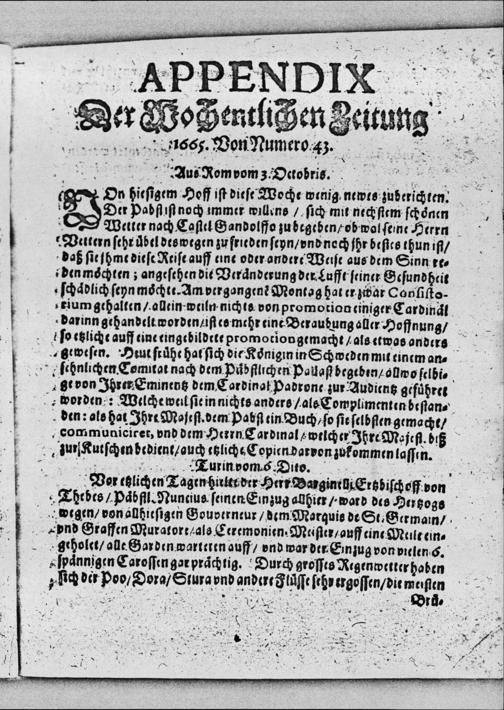 APPENDIX
Der Wochentlichen Zeitung
1665. Von Numero 43.
Aus Rom vom 3. Octobris.
VOn hiesigem Hoff ist diese Woche wenig newes zuberichten.
Der Pabst ist noch immer willens / sich mit nechstem schönen
Wetter nach Castel Gandolffo zu begeben / ob wol seine Herrn
Vettern sehr übel deswegen zu frieden seyn / vnd noch ihr bestes thun ist /
daß sie ihme diese Reise auff eine oder andere Weise aus dem Sinn re-
den möchten ; angesehen die Veränderung der Lufft seiner Gesundheit
schädlich seyn möchte. Am vergangenẽ Montag hat er zwar Consisto-
rium gehalten / allein weiln nichts von promotion einiger Cardinäl
darinn gehandelt worden / ist es mehr eine Beraubung aller Hoffnung /
so etzliche auff eine eingebildete promotion gemacht / als etwas anders
gewesen. Heut frühe hat sich die Königin in Schweden mit einem an-
sehnlichen Comitat nach dem Päbstlichen Pallast begeben / allwo selbi-
ge von Ihrer Eminentz dem Cardinal Padrone zur Audientz geführet
worden : Welche weil sie in nichts anders / als Complimenten bestan-
den : als hat Ihre Majest. dem Pabst ein Buch / so sie selbsten gemacht /
communiciret, vnd dem Herrn Cardinal / welcher Ihre Majest. biß
zur Kutschen bedient / auch etzliche Copien darvon zukommen lassen.
Turin vom 6. Dito.
Vor etzlichen Tagen hielte der Herr Barginelli Ertzbischoff von
Thebes / Päbstl. Nuncius seinen Einzug allhier / ward des Hertzogs
wegen / von allhiesigen Gouverneur / dem Marquis de St. Germain /
vnd Graffen Muratore / als Ceremonien-Meister / auff eine Meile ein-
geholet / alle Garden warteten auff / vnd war der Einzug von vielen 6.
spännigen Carossen gar prächtig. Durch grosses Regenwetter haben
sich der Poo / Dora / Stura vnd andere Flüsse sehr ergossen / die meisten
Brü-